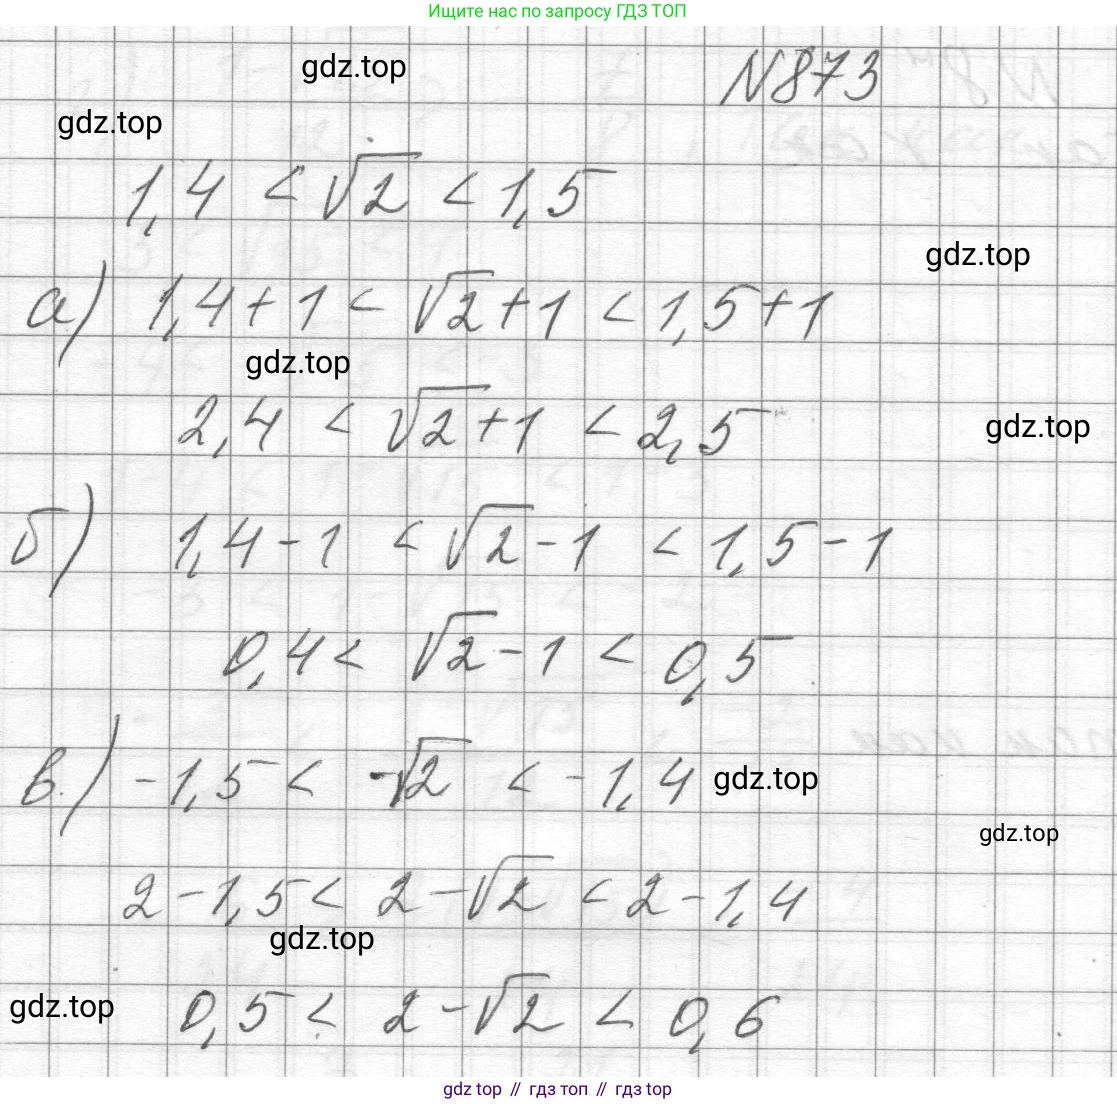 Ищите нас по запросу ГДЗ ТОП
gdz.top
N873
gdz.top
1,4 < √2 < 1,5
gdz.top
а) 1,4+1 < √2+1 < 1,5+1
gdz.top
2,4 < √2+1 < 2,5
gdz.top
б) 1,4-1 < √2-1 < 1,5-1
0,4 < √2-1 < 0,5
в) -1,5 < -√2 < -1,4
gdz.top
gdz.top
2-1,5 < 2-√2 < 2-1,4
gdz.top
gdz.top
0,5 < 2-√2 < 0,6
gdz top // гдз топ // гдз top